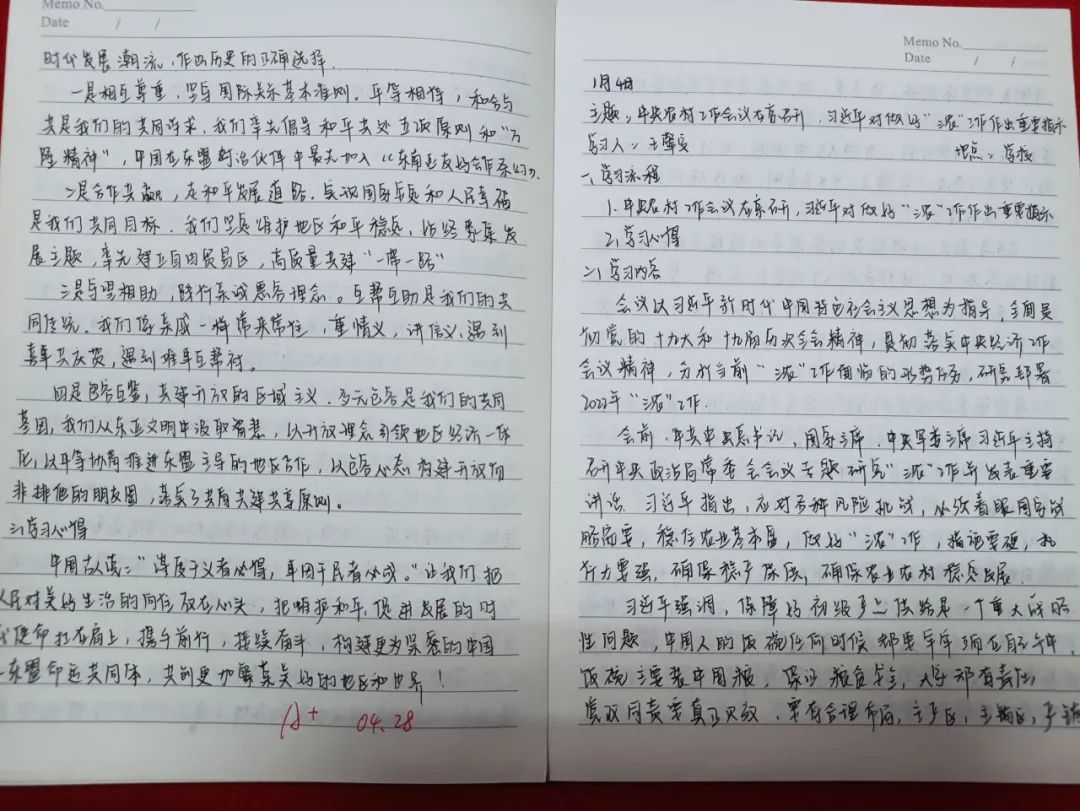 Memo No.
Date / /
时代发展潮流，作出历史的正确选择。
一是相互尊重，坚守国际关系基本准则。平等相待，和合与
共是我们的共同诉求。我们率先倡导和平共处五项原则和“万
隆精神”，中国在东盟对话伙伴中最先加入《东南亚友好合作条约》。
二是合作共赢，走和平发展道路。实现国家发展和人民幸福
是我们共同目标。我们坚定维护地区和平稳定，始终聚焦发
展主题，率先建立自由贸易区，高质量共建“一带一路”
三是守望相助，践行亲诚惠容理念。互帮互助是我们的共
同传统。我们像亲戚一样常来常往，重情义，讲信义，遇到
喜事共庆贺，遇到难事互帮衬。
四是包容互鉴，共建开放的区域主义。多元包容是我们的共同
基因，我们从东亚文明中汲取智慧，以开放理念引领地区经济一体
化，以平等协商推进东盟主导的地区合作，以包容心态构建开放而
非排他的朋友圈，落实了共商共建共享原则。
三、学习心得
中国古人说：“谋度于义者必得，事因于民者必成。”让我们把
人民对美好生活的向往放在心头，把维护和平、促进发展的时
代使命扛在肩上，携手前行，接续奋斗，构建更为紧密的中国
—东盟命运共同体，共创更加繁荣美好的地区和世界！
A+ 04.28
Memo No.
Date / /
1月4日
主题：中央农村工作会议在京召开，习近平对做好“三农”工作作出重要指示
学习人： 地点：学校
一、学习流程
1.中央农村工作会议在京召开，习近平对做好“三农”工作作出重要指示
2.学习心得
二、学习内容
会议以习近平新时代中国特色社会主义思想为指导，全面贯
彻党的十九大和十九届历次全会精神，贯彻落实中央经济工作
会议精神，分析当前“三农”工作面临的形势任务，研究部署
2022年“三农”工作.
会前，中共中央总书记、国家主席、中央军委主席习近平主持
召开中央政治局常委会会议专题研究“三农”工作并发表重要
讲话。习近平指出，应对各种风险挑战，必须着眼国家战
略需要，稳住农业基本盘，做好“三农”工作，措施要硬，执
行力要强，确保稳产保供，确保农业农村稳定发展.
习近平强调，保障好初级产品供给是一个重大战略
性问题，中国人的饭碗任何时候都要牢牢端在自己手中，
饭碗主要装中国粮。保证粮食安全，大家都有责任，
党政同责要真正见效。要有合理布局，主产区、主销区、产销